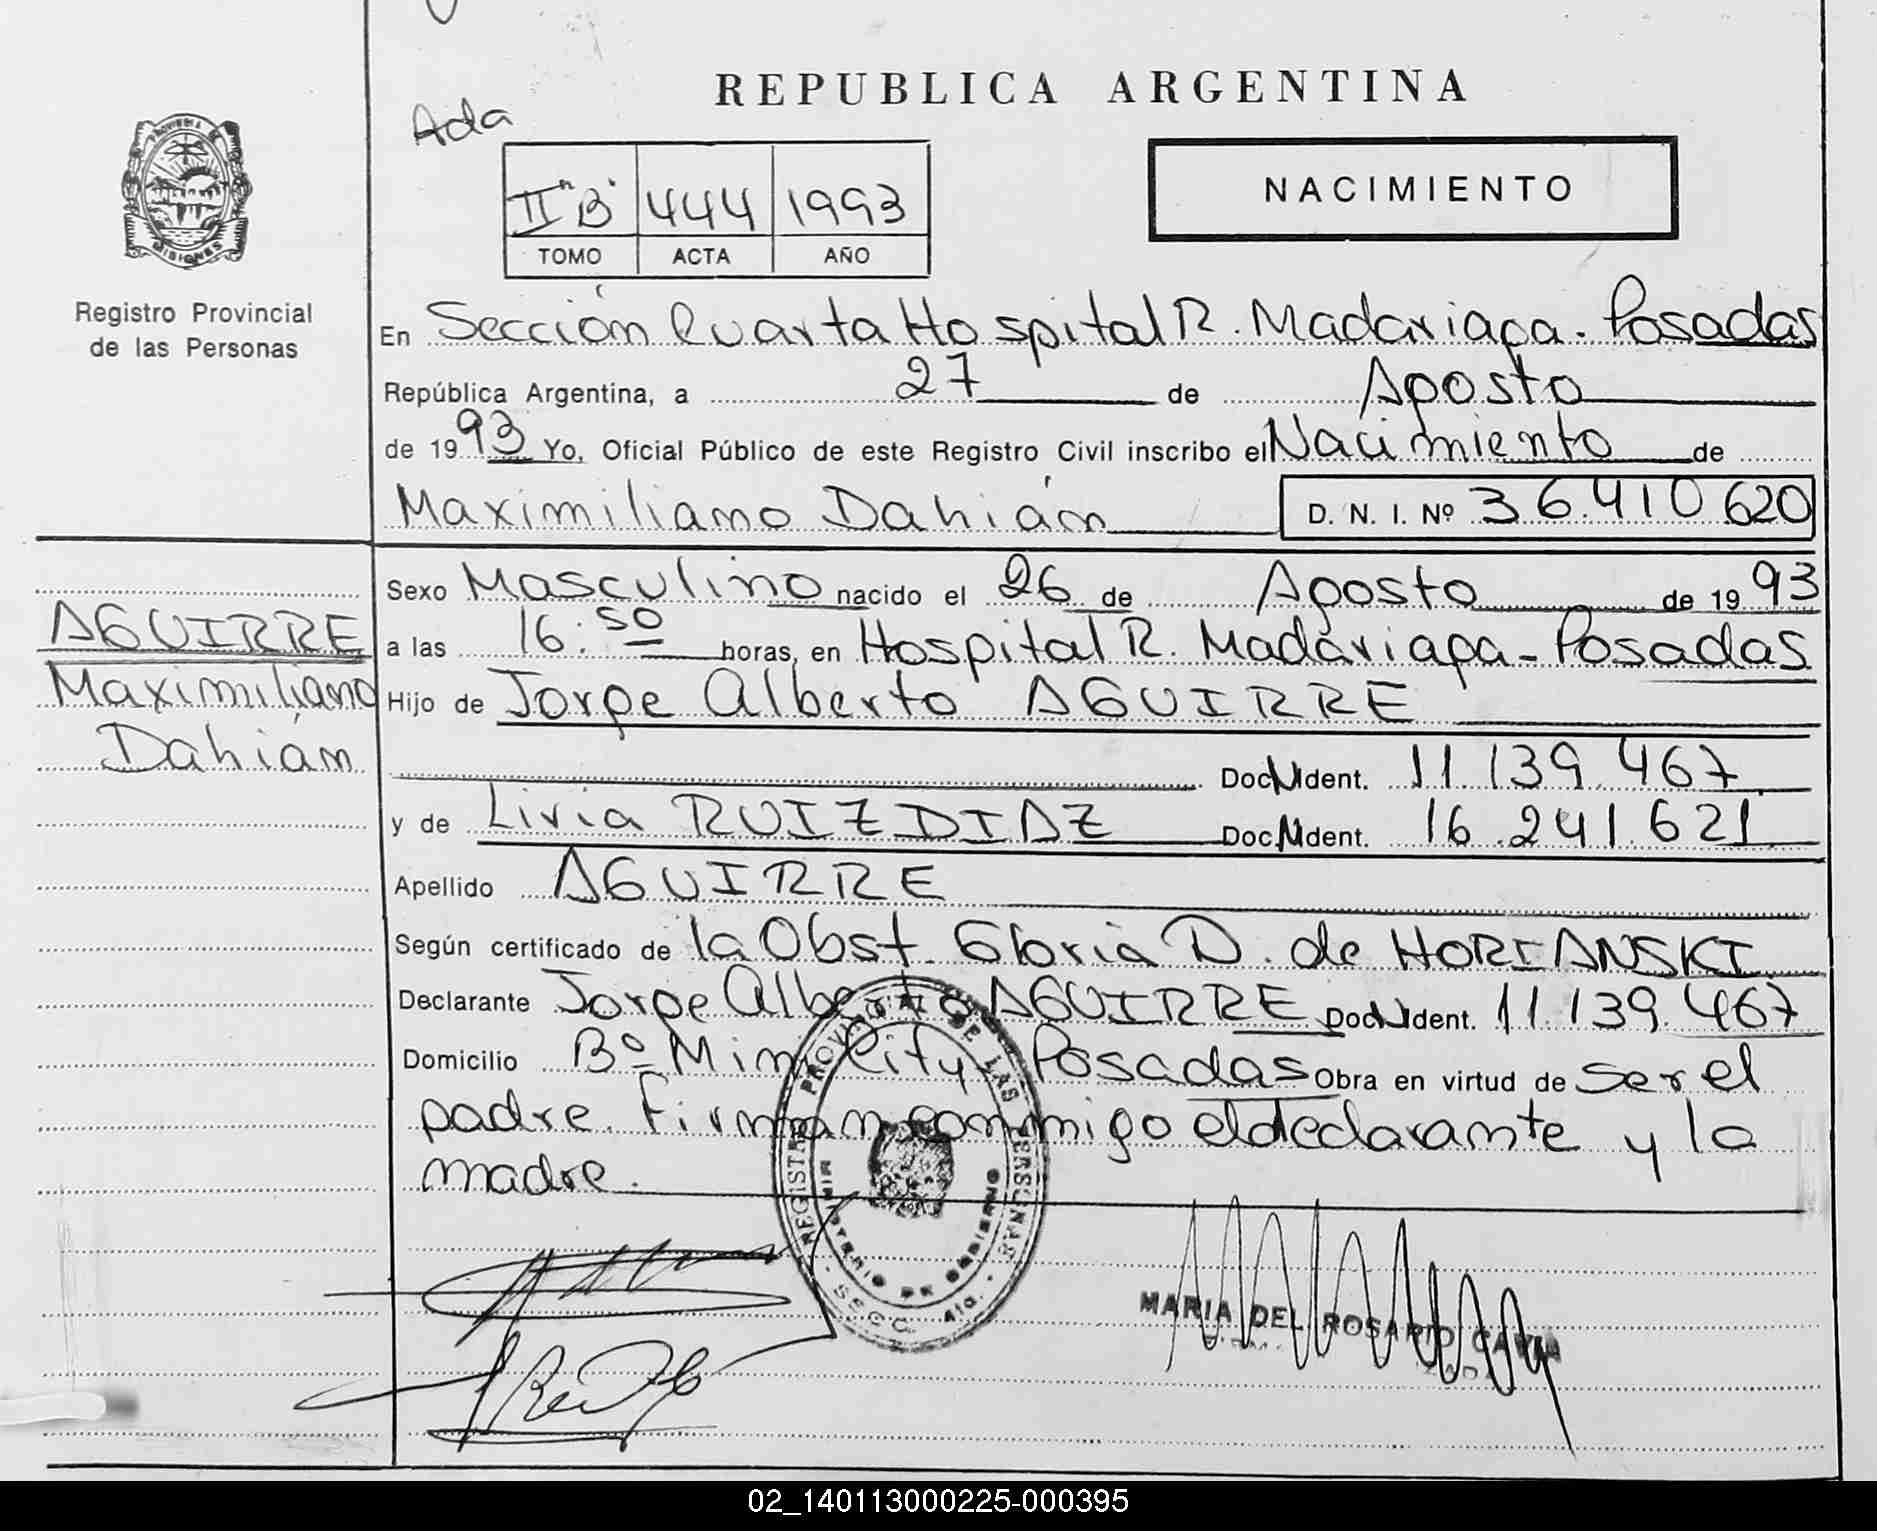 REPUBLICA ARGENTINA
Ada
II "B" 444 1993
TOMO ACTA AÑO
NACIMIENTO
PROVINCIA DE
MISIONES
Registro Provincial
de las Personas
En Sección Cuarta Hospital R. Madariaga - Posadas
República Argentina, a 27 de Agosto
de 1993 Yo, Oficial Público de este Registro Civil inscribo el Nacimiento de
Maximiliano Dahián D. N. I. Nº 36.410 620
AGUIRRE
Maximiliano
Dahián
Sexo Masculino nacido el 26 de Agosto de 1993
a las 16:50 horas, en Hospital R. Madariaga - Posadas
Hijo de Jorge Alberto AGUIRRE
Doc. Ident. 11.139.467
y de Livia RUIZ DIAZ Doc. Ident. 16.241.621
Apellido AGUIRRE
Según certificado de la Obst. Gloria D. de HORIANSKI
Declarante Jorge Alberto AGUIRRE Doc. Ident. 11.139.467
Domicilio Bº Mini City Posadas Obra en virtud de ser el
padre. Firman conmigo el declarante y la
madre.
REGISTRO PROVINCIAL DE LAS PERSONAS
MINISTERIO DE GOBIERNO
SECC. 4ta.
MARIA DEL ROSARIO
02_140113000225-000395